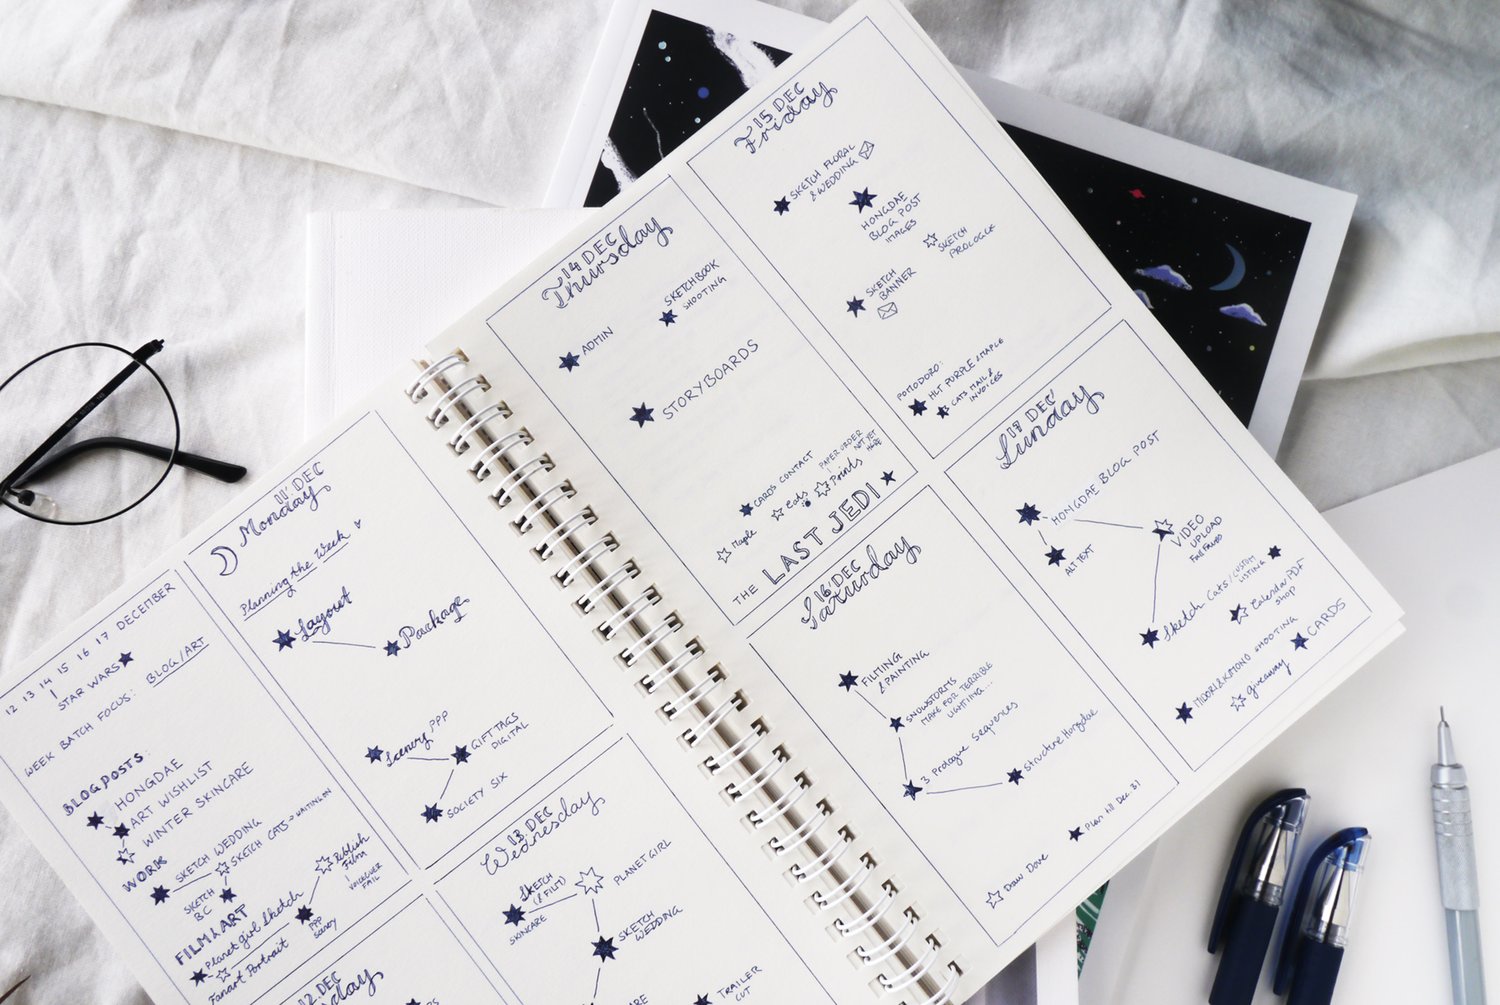 12 13 14 15 16 17 DECEMBER
STAR WARS
WEEK BATCH FOCUS: BLOG/ART
BLOG POSTS:
HONGDAE
ART WISHLIST
WINTER SKINCARE
WORK
SKETCH WEDDING
SKETCH CATS → WAITING ON
SKETCH
BC
Publish
Film
VOICEOVER
FAIL
FILM & ART
Planet girl sketch
PPP
Fanart Portrait
11 DEC
Monday
Planning the Week
Layout
Package
Scenery PPP
GIFT TAGS
DIGITAL
SOCIETY SIX
12 DEC
13 DEC
Wednesday
SKETCH
(& FILM)
SKINCARE
PLANET GIRL
SKETCH
WEDDING
TRAILER
CUT
14 DEC
Thursday
ADMIN
SKETCHBOOK
SHOOTING
STORYBOARDS
CARDS CONTACT
PAPER ORDER
NOT YET
HERE
Maple
Cats
Prints
THE LAST JEDI
15 DEC
Friday
SKETCH FLORAL
& WEDDING
HONGDAE
BLOG POST
IMAGES
SKETCH
PROLOGUE
SKETCH
BANNER
POMODORO:
HLT PURPLE & MAPLE
CATS MAIL &
INVOICES
16 DEC
Saturday
FILMING
& PAINTING
SNOWSTORMS
MAKE FOR TERRIBLE
LIGHTING...
3 Prologue Sequences
Structure Hongdae
Plan till Dec 31
Draw Dove
17 DEC
Sunday
HONGDAE BLOG POST
ALT TEXT
VIDEO
UPLOAD
Sketch Cats/CUSTOM
LISTING
Calendar PDF
shop
MIDORI & KIMONO SHOOTING
CARDS
giveaway